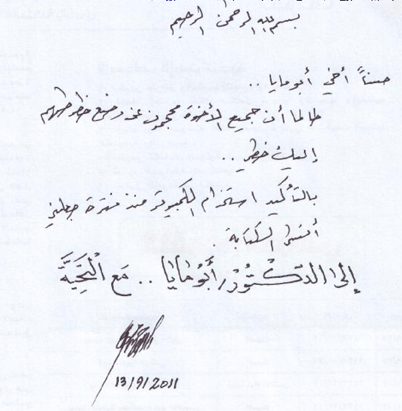 بسم الله الرحمن الرحيم
حسناً أخي أبو مايا ..
طالما أن جميع الأخوة محجمون عن وضع خطوطهم
إليك خطي ..
بالتأكيد استخدام الكمبيوتر منذ فترة جعلني
أنسى الكتابة .
إلى الدكتور أبو مايا .. مع التحية
13/9/2011